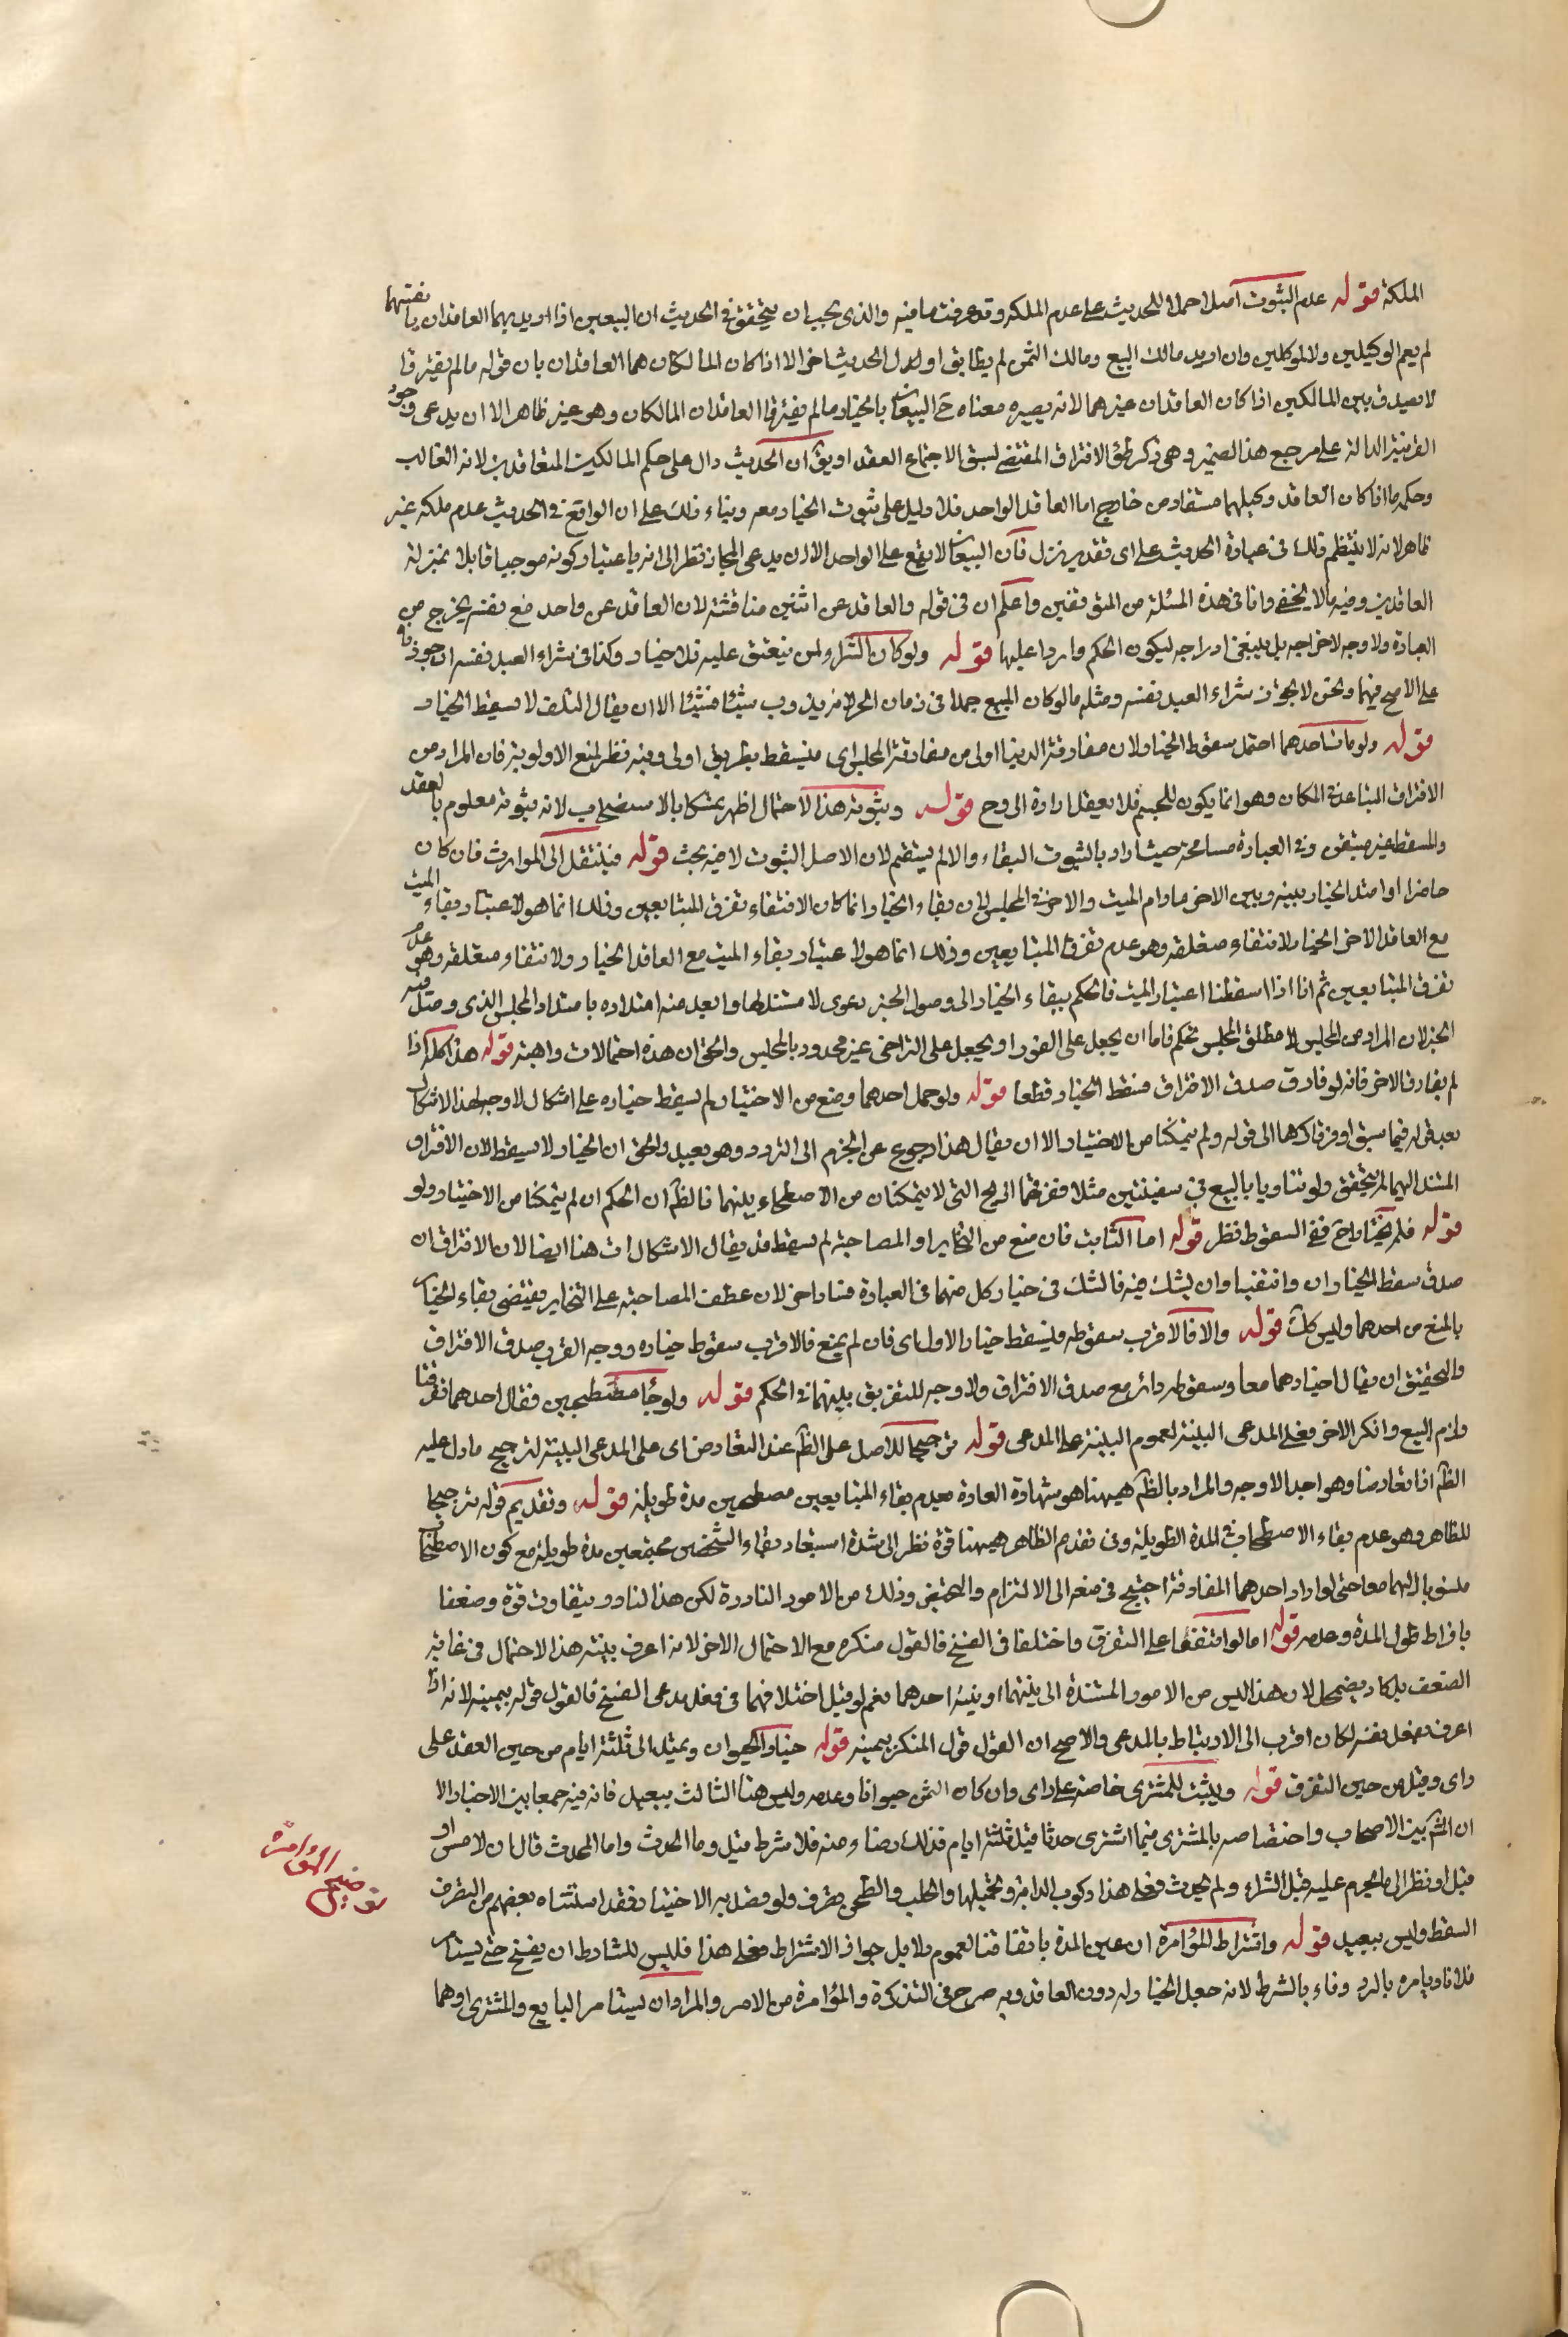 الملكة قوله عدم الثبوت اصلا حملا للحديث على عدم الملكة وقد عرفت ما فيه والذي يجب ان يتحقق في الحديث ان البيعين اذا اريد بهما العاقدان بانفسهما
لم يعم الوكيلين ولا الموكلين وان اريد مالك البيع ومالك الثمن لم يطابق اول الحديث اخره الا اذا كان المالكان هما العاقدان بان قوله ما لم يفترقا
لا يصدق بين المالكين اذا كان العاقدان غيرهما لانه يصير معناه ح البيعان بالخيار ما لم يفترق العاقدان المالكان وهو غير ظاهر الا ان يدعى وجود
القرينة الدالة على مرجع هذا الضمير وهي ذكر طرق الافتراق المقتضي لسبق الاجتماع العقد او يق ان الحديث دال على حكم المالكين المتعاقدين لانه الغالب
وحكم ما اذا كان العاقد وكيلهما مستفاد من خارج اما العاقد الواحد فلا دليل على ثبوت الخيار معه وبناء ذلك على ان الواقع في الحديث عدم ملكة غير
ظاهر لانه لا ينتظم ذلك في عبارة الحديث على اي تقدير نزل فان البيعان لا يقع على الواحد الا ان يدعى المجاز نظرا الى انه باعتبار كونه موجبا قابلا بمنزلة
العاقدين وفيه ما لا يخفى وانا في هذه المسئلة من المتوقفين واعلم ان في قوله والعاقد عن اثنين مناقشة لان العاقد عن واحد مع نفسه يخرج من
العبارة ولا وجه لاخراجه بل ينبغي ادراجه ليكون الحكم واردا عليها قوله ولو كان الشراء لمن ينعتق عليه فلا خيار وكذا في شراء العبد نفسه ان جوزناه
على الاصح فيهما ونحن لا نجوز شراء العبد نفسه ومثله ما لو كان المبيع جمدا في زمان الحر لانه يذوب شيئا فشيئا الا ان يقال التلف لا يسقط الخيار
قوله ولو مات احدهما احتمل سقوط الخيار لان مفارقة الدنيا اولى من مفارقة المجلس اي فيسقط بطريق اولى وفيه نظر لمنع الاولوية فان المراد من
الافتراق التباعد في المكان وهو انما يكون للجسم فلا يعقل ارادة الروح قوله وثبوته هذا الاحتمال اظهر تمسكا بالاستصحاب لانه ثبوته معلوم بالعقد
والمسقط غير متيقن وفي العبارة مسامحة حيث اراد بالثبوت البقاء والا لم يستقم لان الاصل الثبوت لا فيه بحث قوله فينتقل الى الوارث فان كان
حاضرا او امتد الخيار بينه وبين الاخر ما دام الميت والاخر في المجلس لان بقاء الخيار انما كان لانتفاء تفرق المتبايعين وذلك انما هو لاعتبار بقاء الميت
مع العاقد الاخر الخيار ولانتفاء متعلقه وهو عدم تفرق المتبايعين وذلك انما هو لاعتبار بقاء الميت مع العاقد الخيار ولانتفاء متعلقه وهو عدم
تفرق المتبايعين ثم انا اذا اسقطنا اعتبار الميت فالحكم ببقاء الخيار الى وصول الخبر دعوى لا مستند لها وابعد منه امتداده بامتداد المجلس الذي وصل فيه
الخبر لان المراد من المجلس لا مطلق المجلس تحكم فاما ان يجعل على الفور او يجعل على التراخي غير محدود بالمجلس والحق ان هذه احتمالات واهية قوله هذا كله اذا
لم يفارق الاخر فانه لو فارق صدق الافتراق فسقط الخيار قطعا قوله ولو حمل احدهما ومنع من الاختيار لم يسقط خياره على اشكال لا وجه لهذا الاشكال
بعد قوله فيما سبق او فرقا كرها الى قوله ولم يتمكنا من الاختيار الا ان يقال هذا رجوع عن الجزم الى التردد وهو بعيد والحق ان الخيار لا يسقط لان الافتراق
المستند اليهما لم يتحقق ولو تناديا بالبيع في سفينتين مثلا ففرقتهما الريح التي لا يتمكنان من الاصطحاء بينهما فالظ ان الحكم ان لم يتمكنا من الاختيار ولو
قوله فلم يختارا ح ففي السقوط نظر قوله اما الثابت فان منع من التخاير او المصاحبة لم يسقط قد يقال الاشكال ات هنا ايضا لان الافتراق ان
صدق سقط الخياران وانتفيا وان يشك فيه فالشك في خيار كل منهما في العبارة فساد اخر لان عطف المصاحبة على التخاير يقتضي بقاء الخيار
بالمنع من احدهما وليس كك قوله والا فالاقرب سقوطه فيسقط خيار الاول اي فان لم يمنع فالاقرب سقوط خياره ووجه القرب صدق الافتراق
والتحقيق ان يقال اختيارهما معا وسقوطه دائر مع صدق الافتراق ولا وجه للتفريق بينهما في الحكم قوله ولو جاءا مصطحبين فقال احدهما تفرقنا
ولزم البيع وانكر الاخر فعلى المدعي البينة لعموم البينة على المدعي قوله ترجيحا للاصل على الظ عند التعارض اي على المدعي البينة لترجيح ما دل عليه
الظ اذا تعارضا وهو احد الاوجه والمراد بالظ هيهنا هو شهادة العادة بعدم بقاء المتبايعين مصطحبين مدة طويلة قوله وتقديم قوله ترجيحا
للظاهر وهو عدم بقاء الاصطحاب في المدة الطويلة وفي تقدم الظاهر هيهنا قوة نظرا الى شدة استبعاد بقاء الشخصين مجتمعين مدة طويلة مع كون الاصطحاب
منسوبا اليهما معا حتى لو اراد احدهما المفارقة احتيج في منعه الى الالتزام والتحيض وذلك من الامور النادرة لكن هذا النادر يتفاوت قوة وضعفا
بافراط طول المدة وعدمه قوله اما لو اتفقا على التفرق واختلفا في الفسخ فالقول منكره مع الاحتمال الاخر لانه اعرف بنيته هذا الاحتمال في غاية
الضعف بل كاد يضمحل لان هذا ليس من الامور المستندة الى نيتهما او نية احدهما نعم لو قيل اختلافهما في فعل مدعي الفسخ فالقول قوله بيمينه لانه اذا
اعرف بفعل نفسه لكان اقرب الى الارتباط بالمدعي والاصح ان القول قول المنكر بيمينه قوله خيار الحيوان ويمتد الى ثلثة ايام من حين العقد على
راي وقيل من حين التفرق قوله ويثبت للمشتري خاصة على راي وان كان الثمن حيوانا وعدمه وليس هنا الثالث ببعيد فانه فيه جمعا بين الاخبار الا
ان الش بين الاصحاب واختصاصه بالمشتري فيما اشترى حدثا قبل ثلثة ايام فذلك رضاء ومنه فلا شرط قيل وما الحدث واما المحدث قال ان لامس او
قبل او نظر الى ما يحرم عليه قبل الشراء ولم يحدث فعلى هذا ركوب الدابة وتحميلها والحلب والطحن تصرف ولو قصد به الاختيار فقد استثناه بعضهم من التصرف
السقط وليس ببعيد قوله واشتراط المؤامرة ان عين المدة باتفاقنا لعموم دلايل جواز الاشتراط فعلى هذا فليس للمشارط ان يفسخ حتى يستامر
فلانا ويامره بالرد وفاء بالشرط لانه جعل الخيار له دون العاقد وبه صرح في التذكرة والمؤامرة من الامر والمراد ان يستامر البايع والمشتري او هما